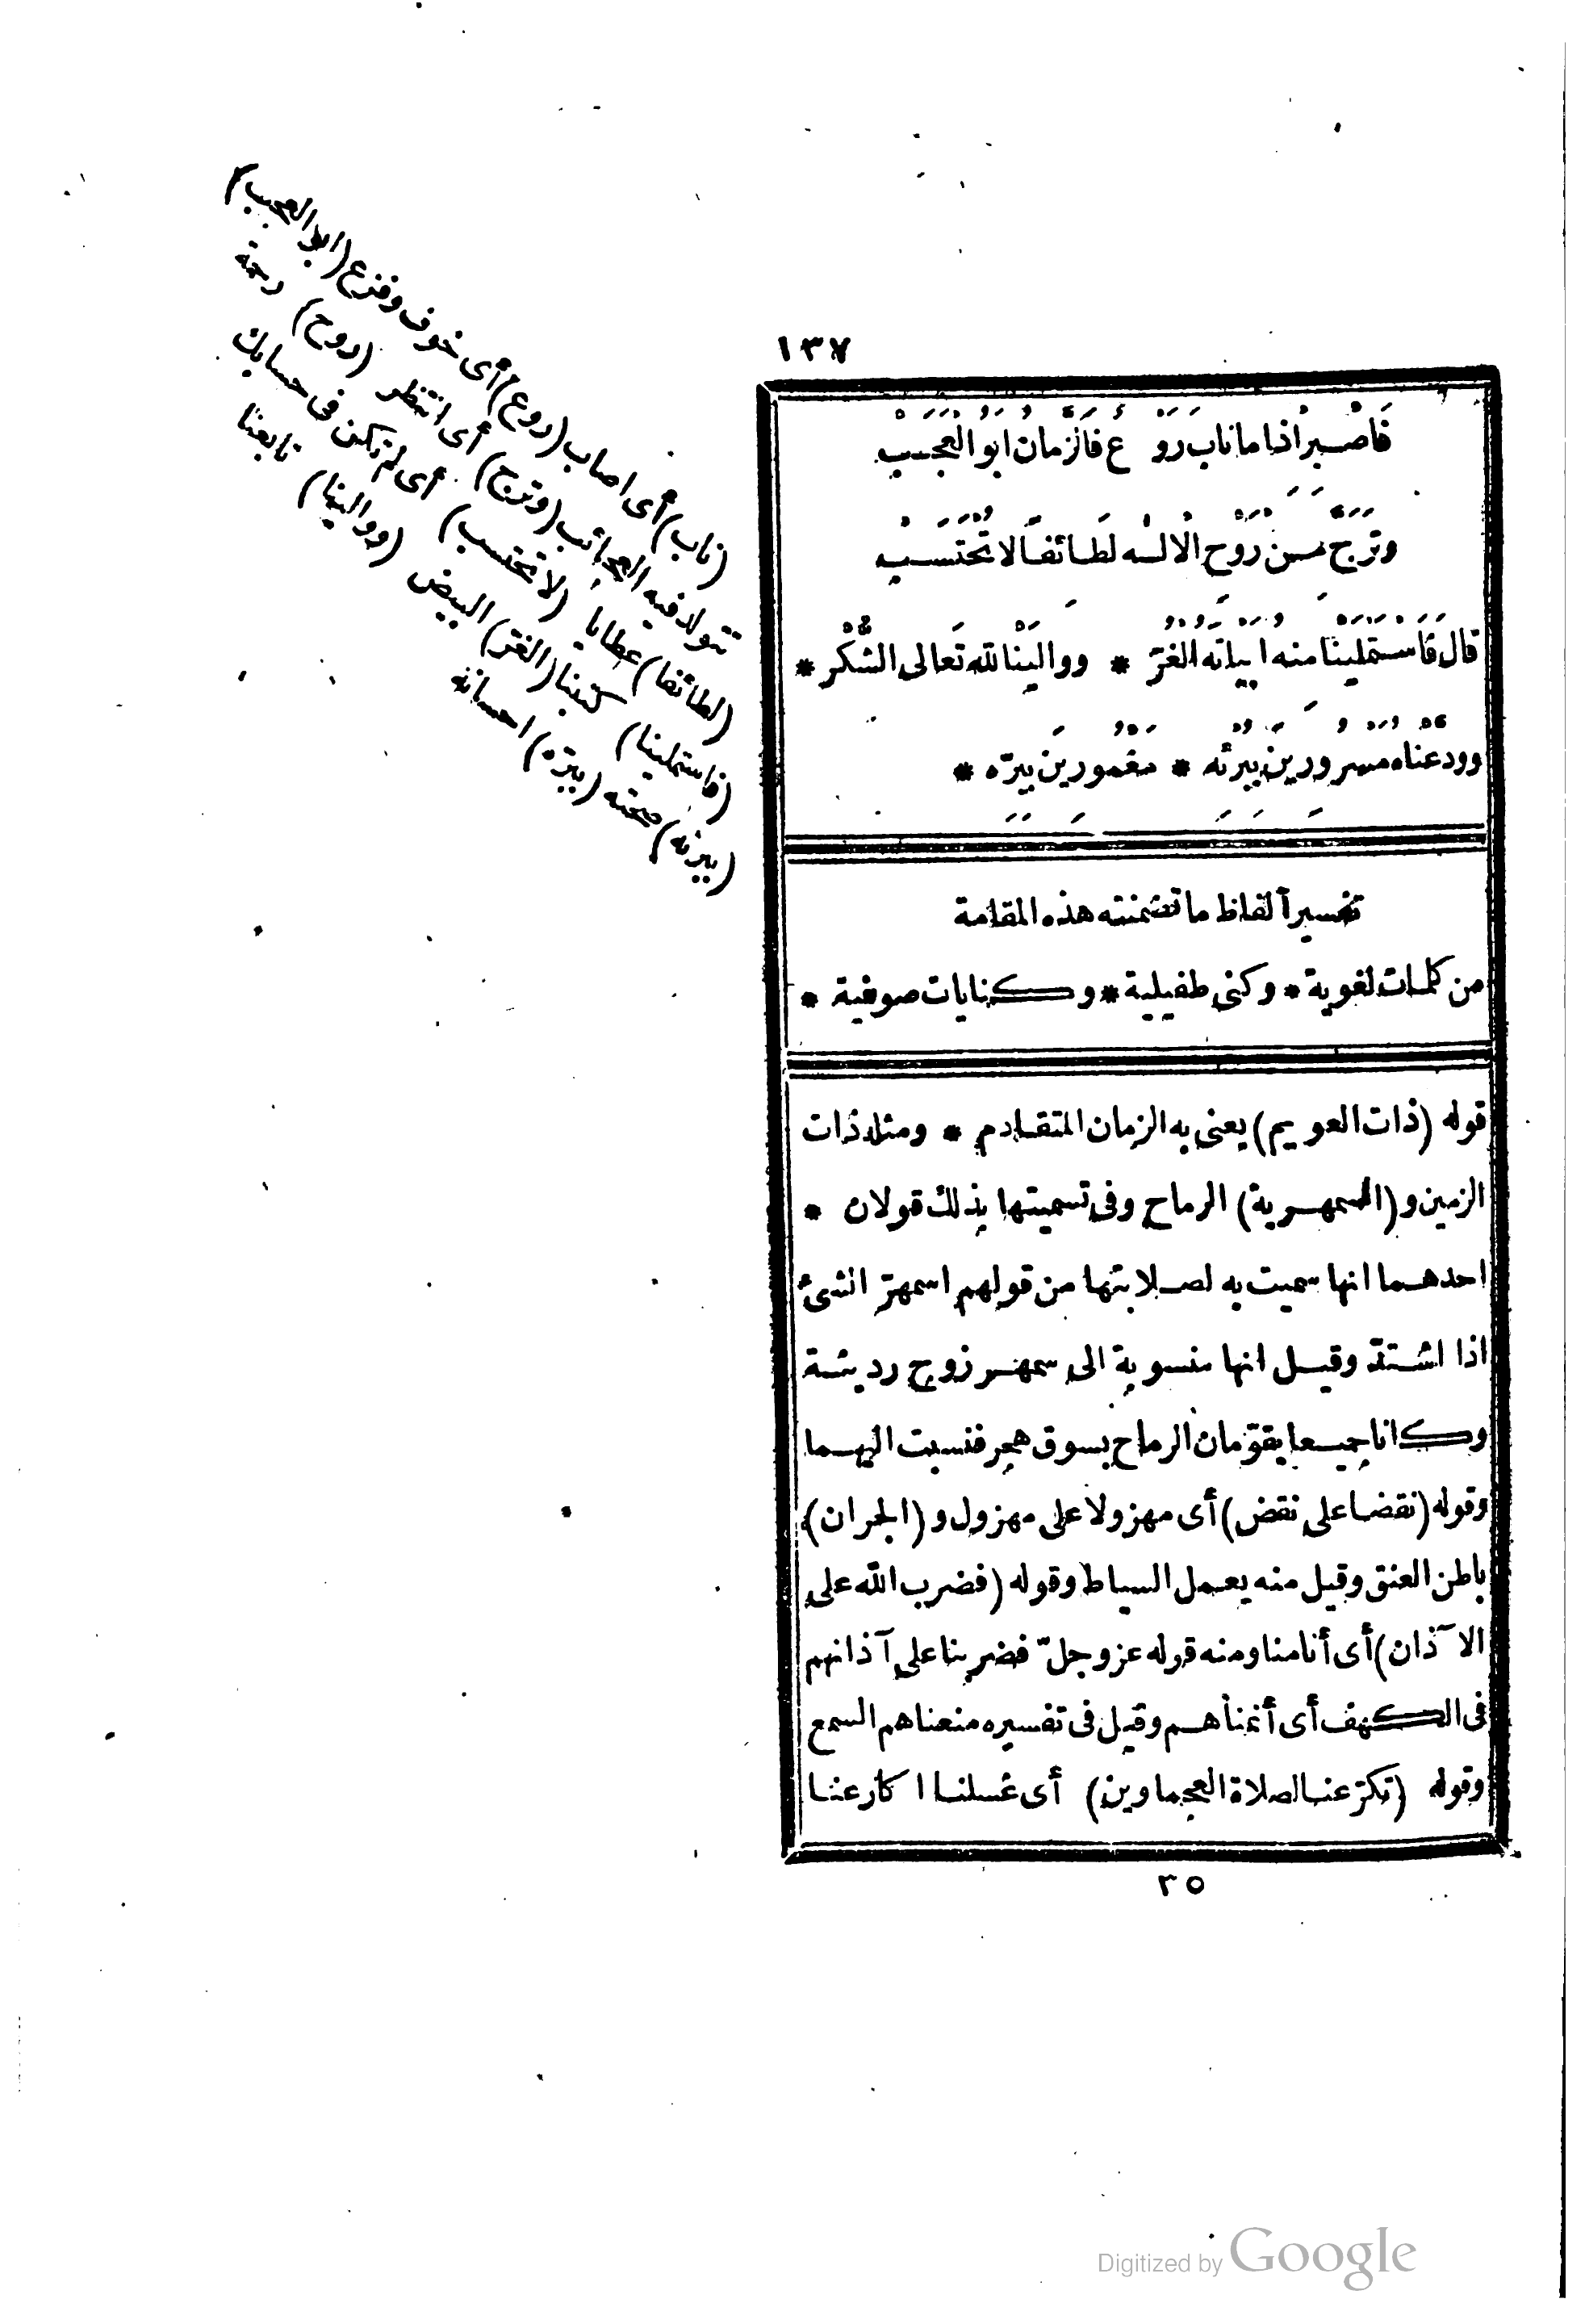 ١٣٧
فَاصْبِرْ اذا ما ناب رَوْ عٌ فَالزَّمانُ ابُو الْعَجَبْ
وتَرَجَّ مِنْ رَوْحِ الْالٰهِ لَطائفًا لا تُحْتَسَبْ
قال فَاسْتَمْلَيْنا منه ابياتَهُ الغُرّ * ووالَيْنا لله تَعالى الشُّكْر *
وودّعْناه مَسْرُورِينَ بِبُرْئه * مَغْمُورِينَ بِبِرّه *
تفسير ألفاظ ما تضمنته هذه المقامة
من كلمات لغوية * وكنى طفيلية * وكنايات صوفية *
قوله (ذات العويم) يعنى به الزمان المتقادم * ومثله ذات
الزمين و (السمهرية) الرماح وفى تسميتها بذلك قولان *
احدهما انها سميت به لصلابتها من قولهم اسمهرّ الشىء
اذا اشتدّ وقيل انها منسوبة الى سمهر زوج ردينة
وكانا جميعا يقوّمان الرماح بسوق هجر فنسبت اليهما
وقوله (نقضا على نقض) أى مهزولا على مهزول و (الجران)
باطن العنق وقيل منه يعمل السياط وقوله (فضرب الله على
الآذان) أى أنامنا ومنه قوله عز وجلّ فضربنا على آذانهم
فى الكهف أى أنمناهم وقيل فى تفسيره منعناهم السمع
وقوله (تكرّعنا لصلاة العجماوين) أى غسلنا اكارعنا
٣٥
(ناب) أى اصاب (روع) أى خوف وفزع (ابو العجب)
تتولد فيه العجائب (وترج) أى انتظر (روح) رحمة
(لطائفا) عطايا (لا تحتسب) أى لم تكن فى حسابك
(فاستملينا) كتبنا (الغرّ) البيض (ووالينا) تابعنا
(ببرئه) صحته (ببرّه) احسانه
Digitized by Google